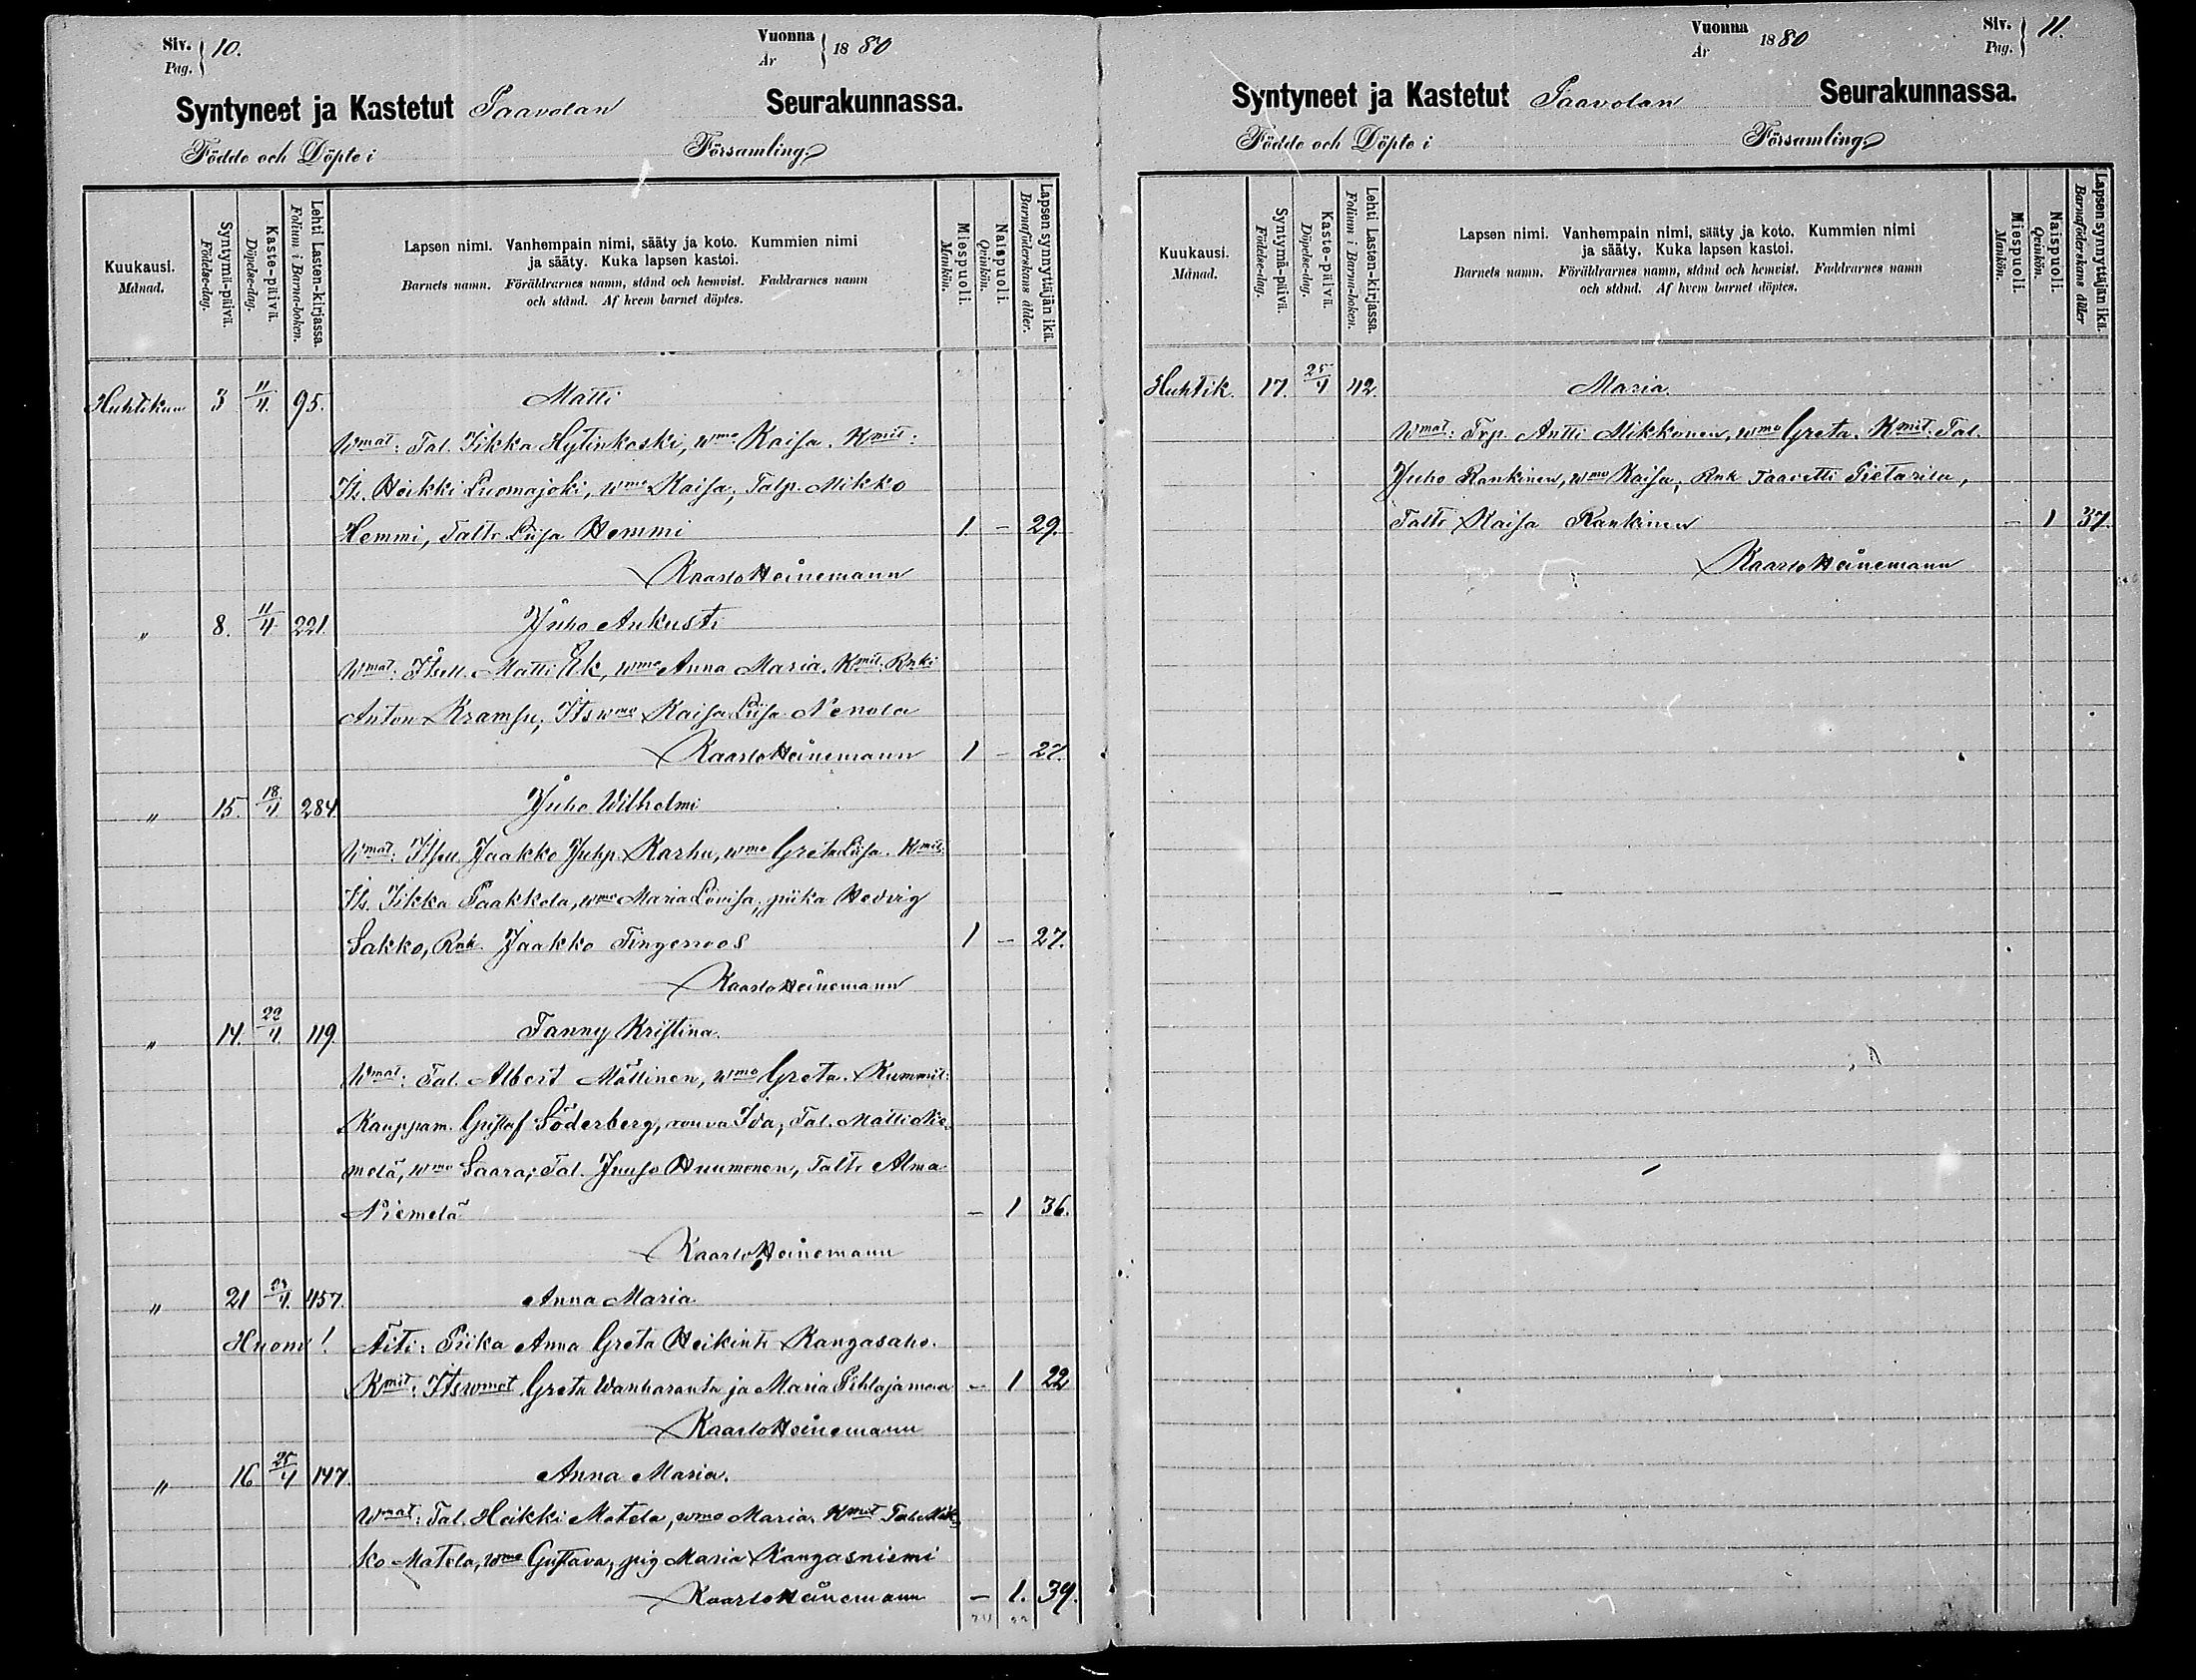 Siv. Pag. 10. Vuonna År 1880
Syntyneet ja Kastetut Paavolan Seurakunnassa.
Födde och Döpte i Församling
Kuukausi. Månad.
Syntymä-päivä. Födelse-dag.
Kaste-päivä. Döpelse-dag.
Lehti Lasten-kirjassa. Folium i Barna-boken.
Lapsen nimi. Vanhempain nimi, sääty ja koto. Kummien nimi
ja sääty. Kuka lapsen kastoi.
Barnets namn. Föräldrarnes namn, stånd och hemvist. Faddrarnes namn
och stånd. Af hvem barnet döptes.
Miespuoli. Mankön.
Naispuoli. Qvinkön.
Lapsen synnyttäjän ikä. Barnaföderskans ålder.
Huhtikuu 3 11/4. 95. Matti
Wmat: Tal. Iikka Hytinkoski, wmo Kaisa. Kmit:
Its. Heikki Luomajoki, wmo Kaisa, Talp. Mikko
Hemmi, Taltr Liisa Hemmi 1. – 29.
Kaarlo Heinemann
" 8. 11/4 221. Juho Aukusti
Wmat: Itsell. Matti Ek, wmo Anna Maria. Kmit. Rnki
Anton Kramsu, Itswmo Kaisa Liisa Nenola
Kaarlo Heinemann 1 – 27.
" 15. 18/4 284. Juho Wilhelmi
Wmat: Itsen Jaakko Juhp. Karhu, wmo Greta Liisa. Kmit:
Its. Iikka Paakkola, wmo Maria Lovisa, piika Hedvig
Sakko, Rnk. Jaakko Fingerroos 1 – 27.
Kaarlo Heinemann
" 14. 22/4. 119. Fanny Kristina.
Wmat: Tal. Albert Mällinen, wmo Greta. Kummit:
Kauppam. Gustaf Söderberg, rouva Ida, Tal. Matti Nie-
melä, wmo Saara; Tal. Juuso Huumonen, Taltr Alma
Niemelä – 1 36.
Kaarlo Heinemann
" 21 457. Anna Maria
Huom! Äiti: Piika Anna Greta Heikintr Kangasaho.
Kmit: Itswmot Greta Wanharanta ja Maria Pihlajamaa – 1 22
Kaarlo Heinemann
" 16 25/4 147. Anna Maria.
Wmat: Tal. Heikki Matela, wmo Maria. Kmit Tal. Mik-
ko Matela, wmo Gustava, pig Maria Kangasniemi
Kaarlo Heinemann – 1. 39.
Vuonna År 1880 Siv. Pag. 11.
Syntyneet ja Kastetut Paavolan Seurakunnassa.
Födde och Döpte i Församling
Kuukausi. Månad.
Syntymä-päivä. Födelse-dag.
Kaste-päivä. Döpelse-dag.
Lehti Lasten-kirjassa. Folium i Barna-boken.
Lapsen nimi. Vanhempain nimi, sääty ja koto. Kummien nimi
ja sääty. Kuka lapsen kastoi.
Barnets namn. Föräldrarnes namn, stånd och hemvist. Faddrarnes namn
och stånd. Af hvem barnet döptes.
Miespuoli. Mankön.
Naispuoli. Qvinkön.
Lapsen synnyttäjän ikä. Barnaföderskans ålder
Huhtik. 17. 25/4 42. Maria.
Wmat: Trp. Antti Mikkonen, wmo Greta. Kmit: Tal.
Juho Rankinen, wmo Kaisa, Rnk Taavetti Pietarila,
Taltr Kaisa Rankinen – 1 37.
Kaarlo Heinemann